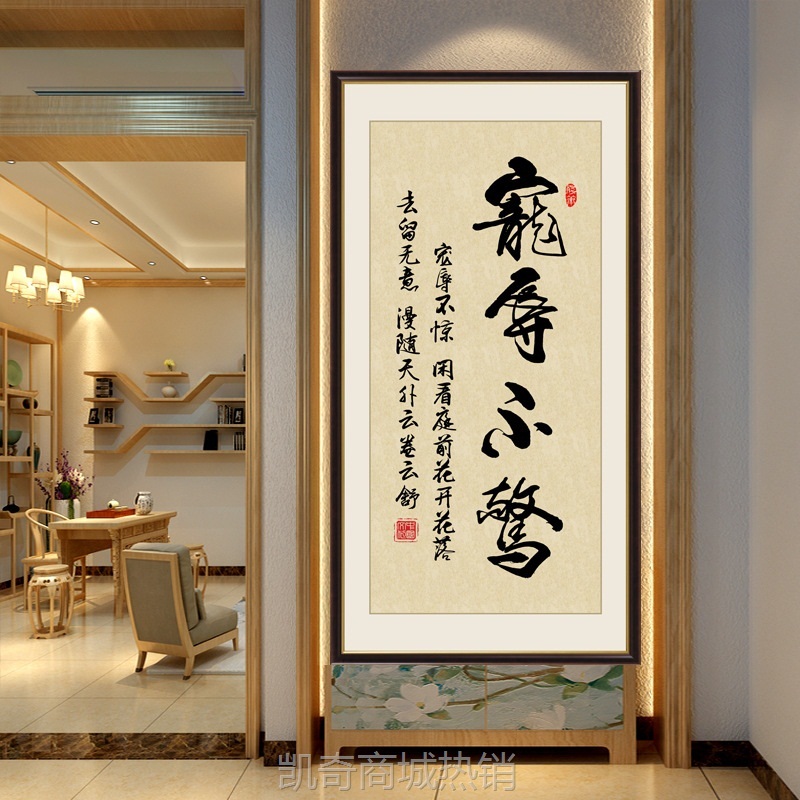 寵辱不驚
宠辱不惊 闲看庭前花开花落
去留无意 漫随天外云卷云舒
凯奇商城热销